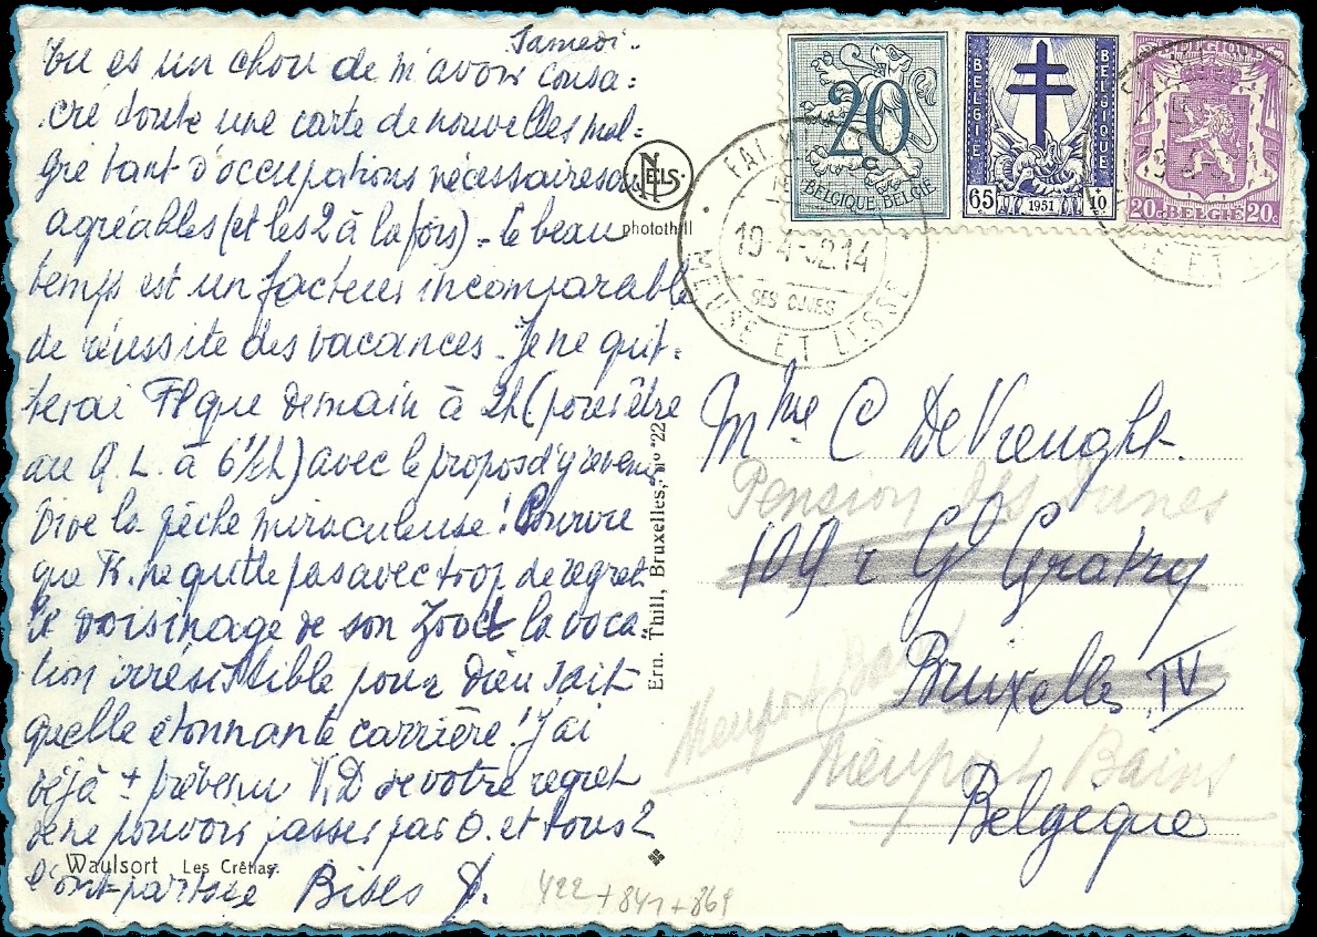 Samedi.
Tu es un chou de m'avoir consa=
cré toute une carte de nouvelles mal=
gré tant d'occupations nécessaires ou
agréables (et les 2 à la fois). Le beau
temps est un facteur incomparable
de réussite des vacances. Je ne quit=
terai que demain à 2h (pour être
au Q. L. à 6½h) avec le propos d'y revenir
Vive la pêche miraculeuse! Pourvu
que Fr. ne quitte pas avec trop de regret
le voisinage de son Zoo et la voca=
tion irrésistible pour Dieu sait
quelle étonnante carrière! J'ai
déjà ± prévenu V.D de votre regret
de ne pouvoir passer par O. et tous 2
l'ont partagé Bises
Waulsort Les Crétias.
NELS
photothill
Ern. Thill, Bruxelles, n° 22
20
BELGIQUE BELGIË
BELGIË
BELGIQUE
65
1951
+10
BELGIQUE
20c BELGIË 20c
19-4-52.14
MEUSE ET LESSE
Mme C De Vreught.
Pension des Dunes
109 r Gl Gratry
Bruxelles IV
Nieuport Bad
Nieuport Bains
Belgique
422+841+869